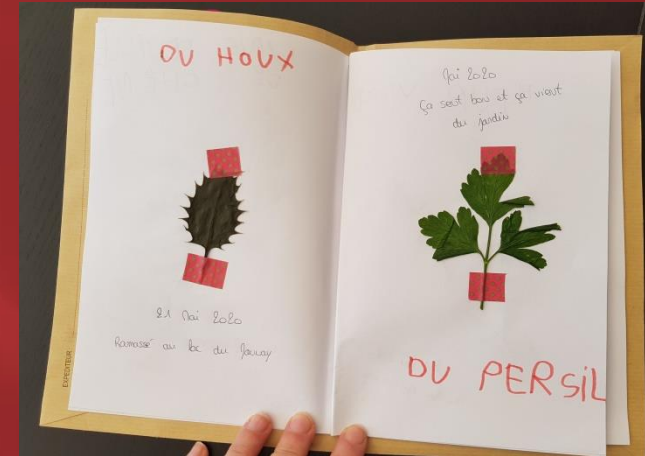 DU HOUX
21 Mai 2020
Ramassé au lac du Jaunay
EXPEDITEUR
Mai 2020
Ça sent bon et ça vient
du jardin
DU PERSIL